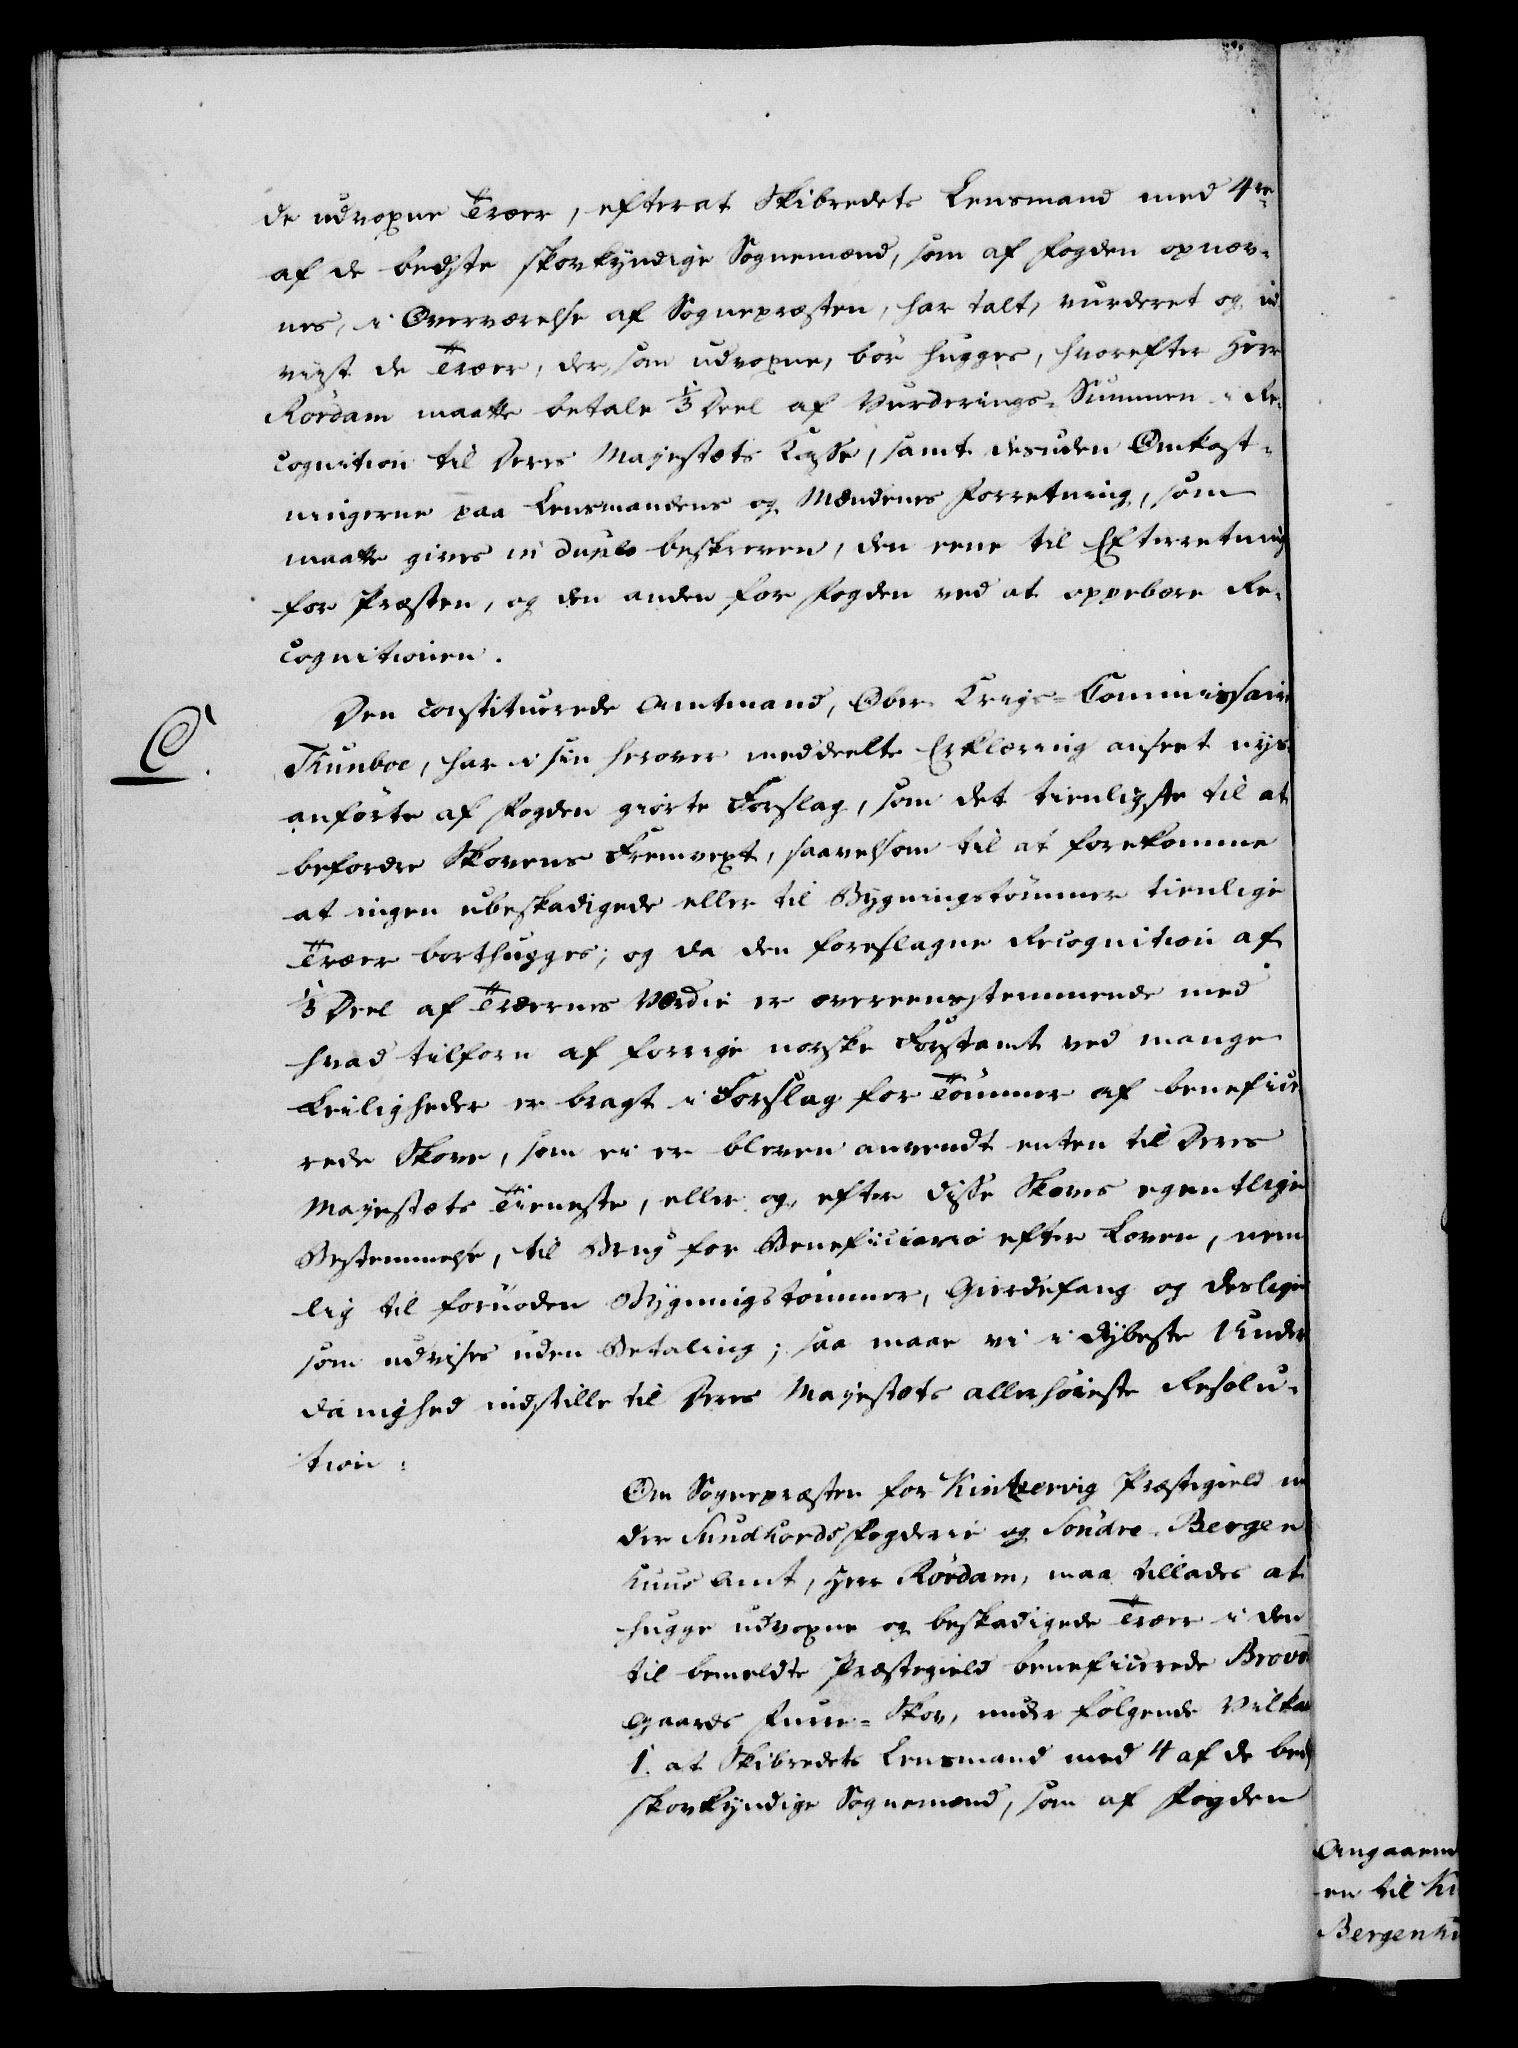 de udvoxne Træer, efterat Skibredets Lensmand med 4re
af de bedste skovkyndige Sognemænd, som af Fogden opnæv-
nes, i Overværelse af Sognepræsten, har talt, vurderet og ud
viist de Træer, der, som udvoxne, bör hugges, hvorefter Herr
Rördam maatte betale 1/3 Deel af Vurderings-Summen i Re-
cognition til Deres Majestæts Casse, samt desuden Omkost-
ningerne paa Lensmandens og Mændenes Forretning, som
maatte gives in duplo beskreven, den eene til Efterretning
for Præsten, og den anden for Fogden ved at oppebære Re-
cognitionen.
C.
Den constituerede Amtmand, Ober-Krigs-Commissair
, har i sin herover meddeelte Erklæring anseet nys
anförte af Fogden giorte Forslag, som det tienligste til at
befordre Skovens Fremvext, saavelsom til at forekomme
at ingen ubeskadigede eller til Bygningstömmer tienlige
Træer borthugges; og da den foreslagne Recognition af
1/3 Deel af Træernes Værdie er overeensstemmende med
hvad tilforn af forrige norske Forstamt ved mange
Leiligheder er bragt i Forslag for Tömmer af beneficie
rede Skove, som ei er bleven anvendt enten til Deres
Majestæts Tieneste, eller og, efter disse Skoves egentlige
Bestemmelse, til Brug for Beneficiario efter Loven, nem
lig til fornöden Bygningstömmer, Gierdefang og deslige
som udvises uden Betaling; saa maae vi i dybeste Under
danighed indstille til Deres Majestæts allerhöieste Resolu-
tion:
Om Sognepræsten for Kintzervig Præstegield un
der Sundhords Fogderie og Söndre Bergen
huus Amt, Herr Rördam, maa tillades at
hugge udvoxne og beskadigede Træer i den
til bemeldte Præstegield beneficerede
Gaards Furre-Skov, under fölgende Vilkaar
1. at Skibredets Lensmand med 4 af de beds
skovkyndige Sognemænd, som af Fogden
Angaaend
en til Ki
Bergenh